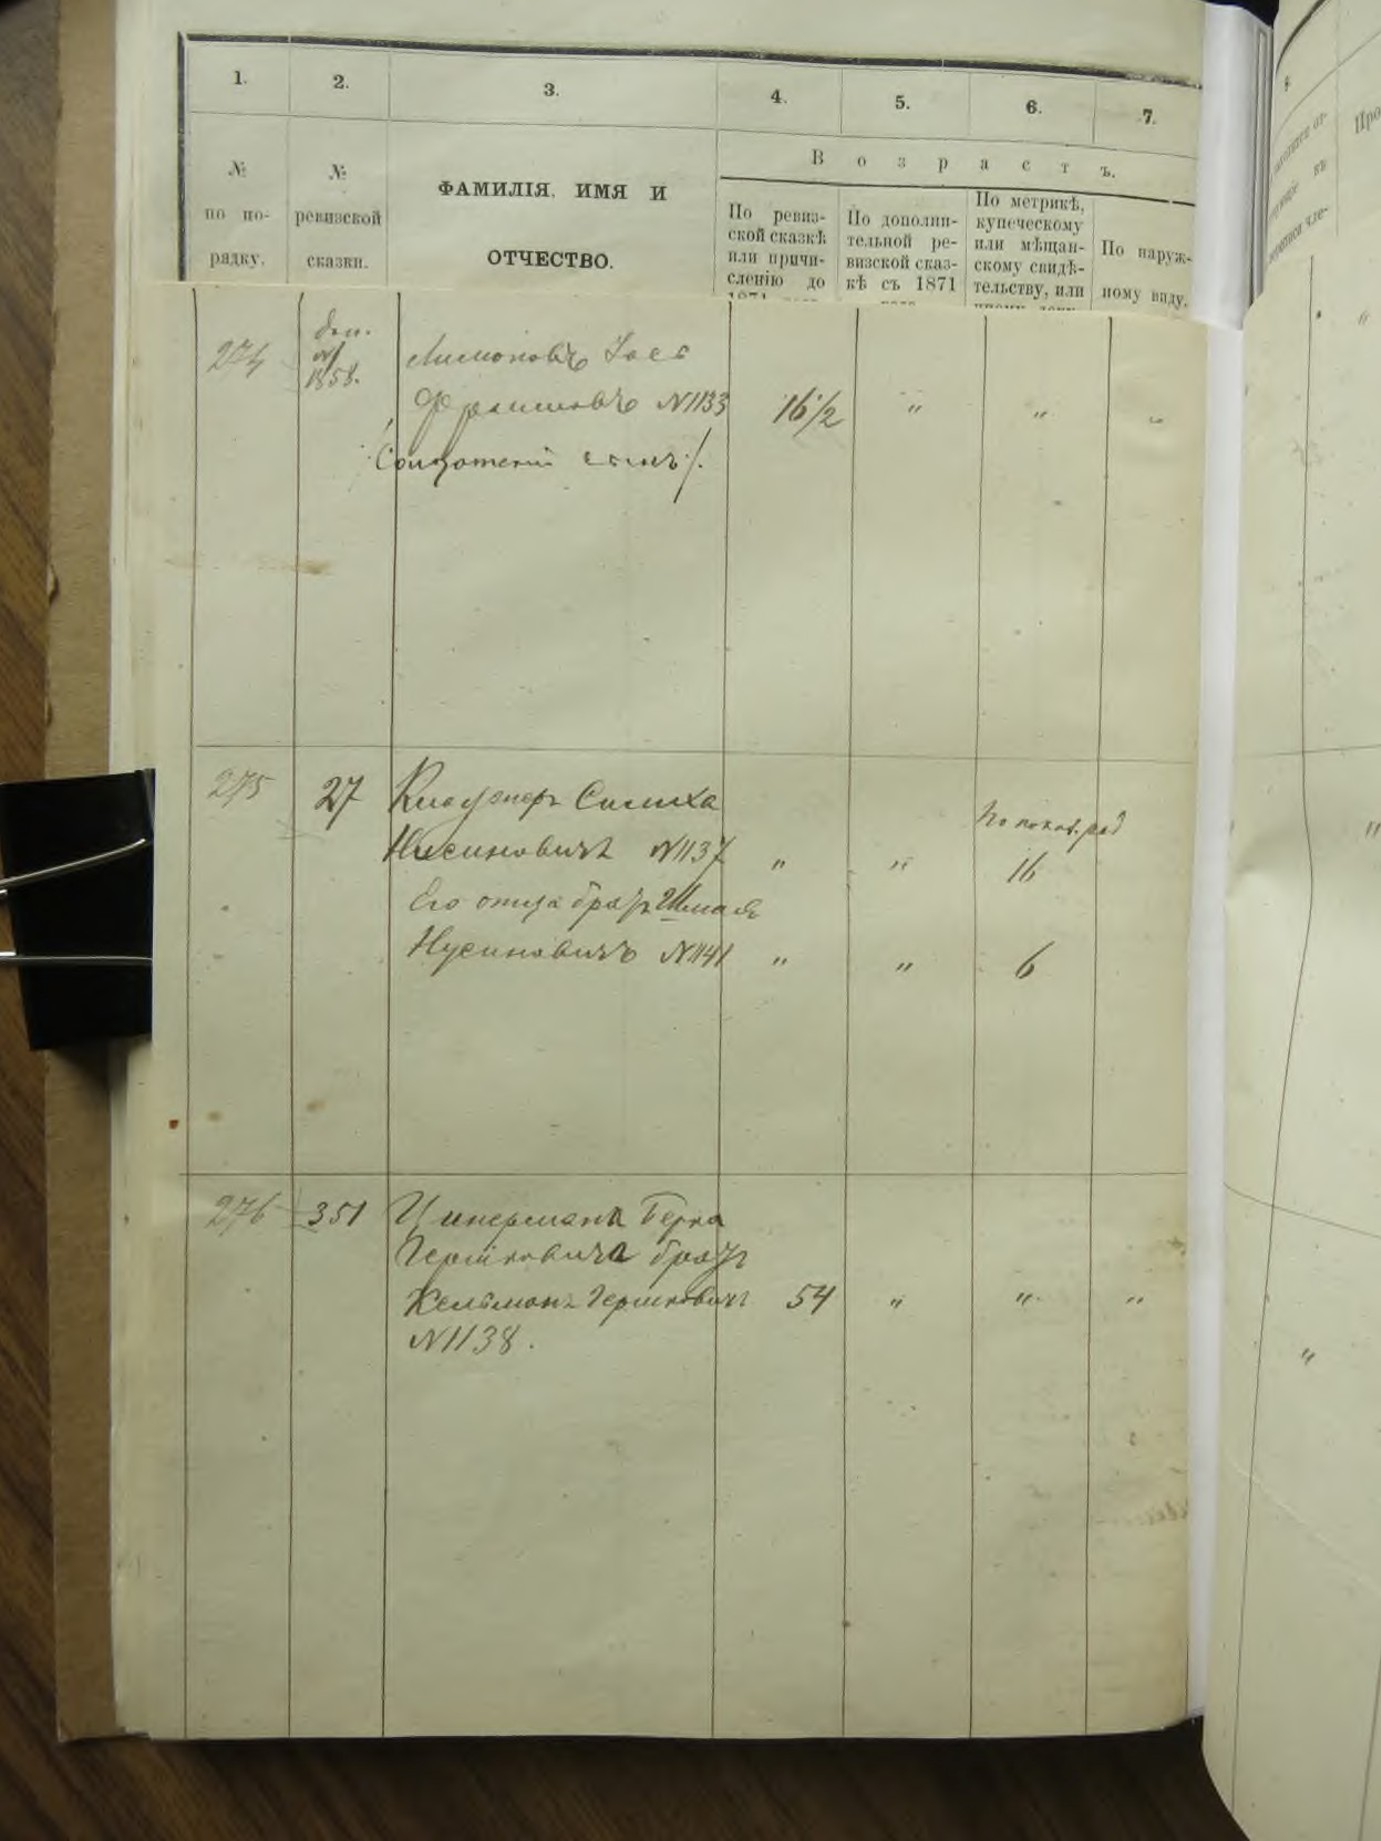 1. 2. 3. 4. 5. 6. 7.
№ по по-рядку.
№ ревизской сказки.
ФАМИЛІЯ, ИМЯ И
ОТЧЕСТВО.
Возрастъ.
По ревиз-
ской сказкѣ
или причи-
сленію до
По дополни-
тельной ре-
визской сказ-
кѣ съ 1871
По метрикѣ,
купеческому
или мѣщан-
скому свидѣ-
тельству, или
По наруж-
ному виду.
274 доп. № 1858. Лимоновъ
№ 1133 16½ " " "
Солдатскій сынъ
275 27 Симха
Нусиновичъ № 1137 " " 16
Его отца братъ Шмая
Нусиновичъ № 1141 " " 6
276 351 Цимерманъ Берка
Гершковича братъ
Кельманъ Гершковичъ 54 " " "
№ 1138.